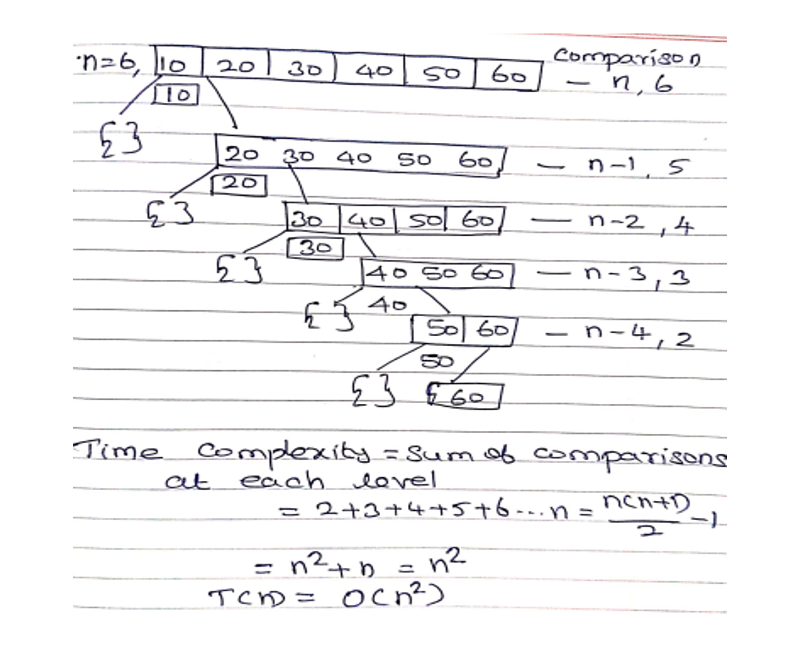 n=6, 10 20 30 40 50 60 Comparison
10 — n, 6
{ }
20 30 40 50 60 — n-1, 5
20
{ } 30 40 50 60 — n-2, 4
30
{ } 40 50 60 — n-3, 3
{ } 40
50 60 — n-4, 2
50
{ } { 60
Time complexity = Sum of comparisons
at each level
= 2+3+4+5+6...n = n(n+1)/2 -1
= n²+n = n²
T(n) = O(n²)